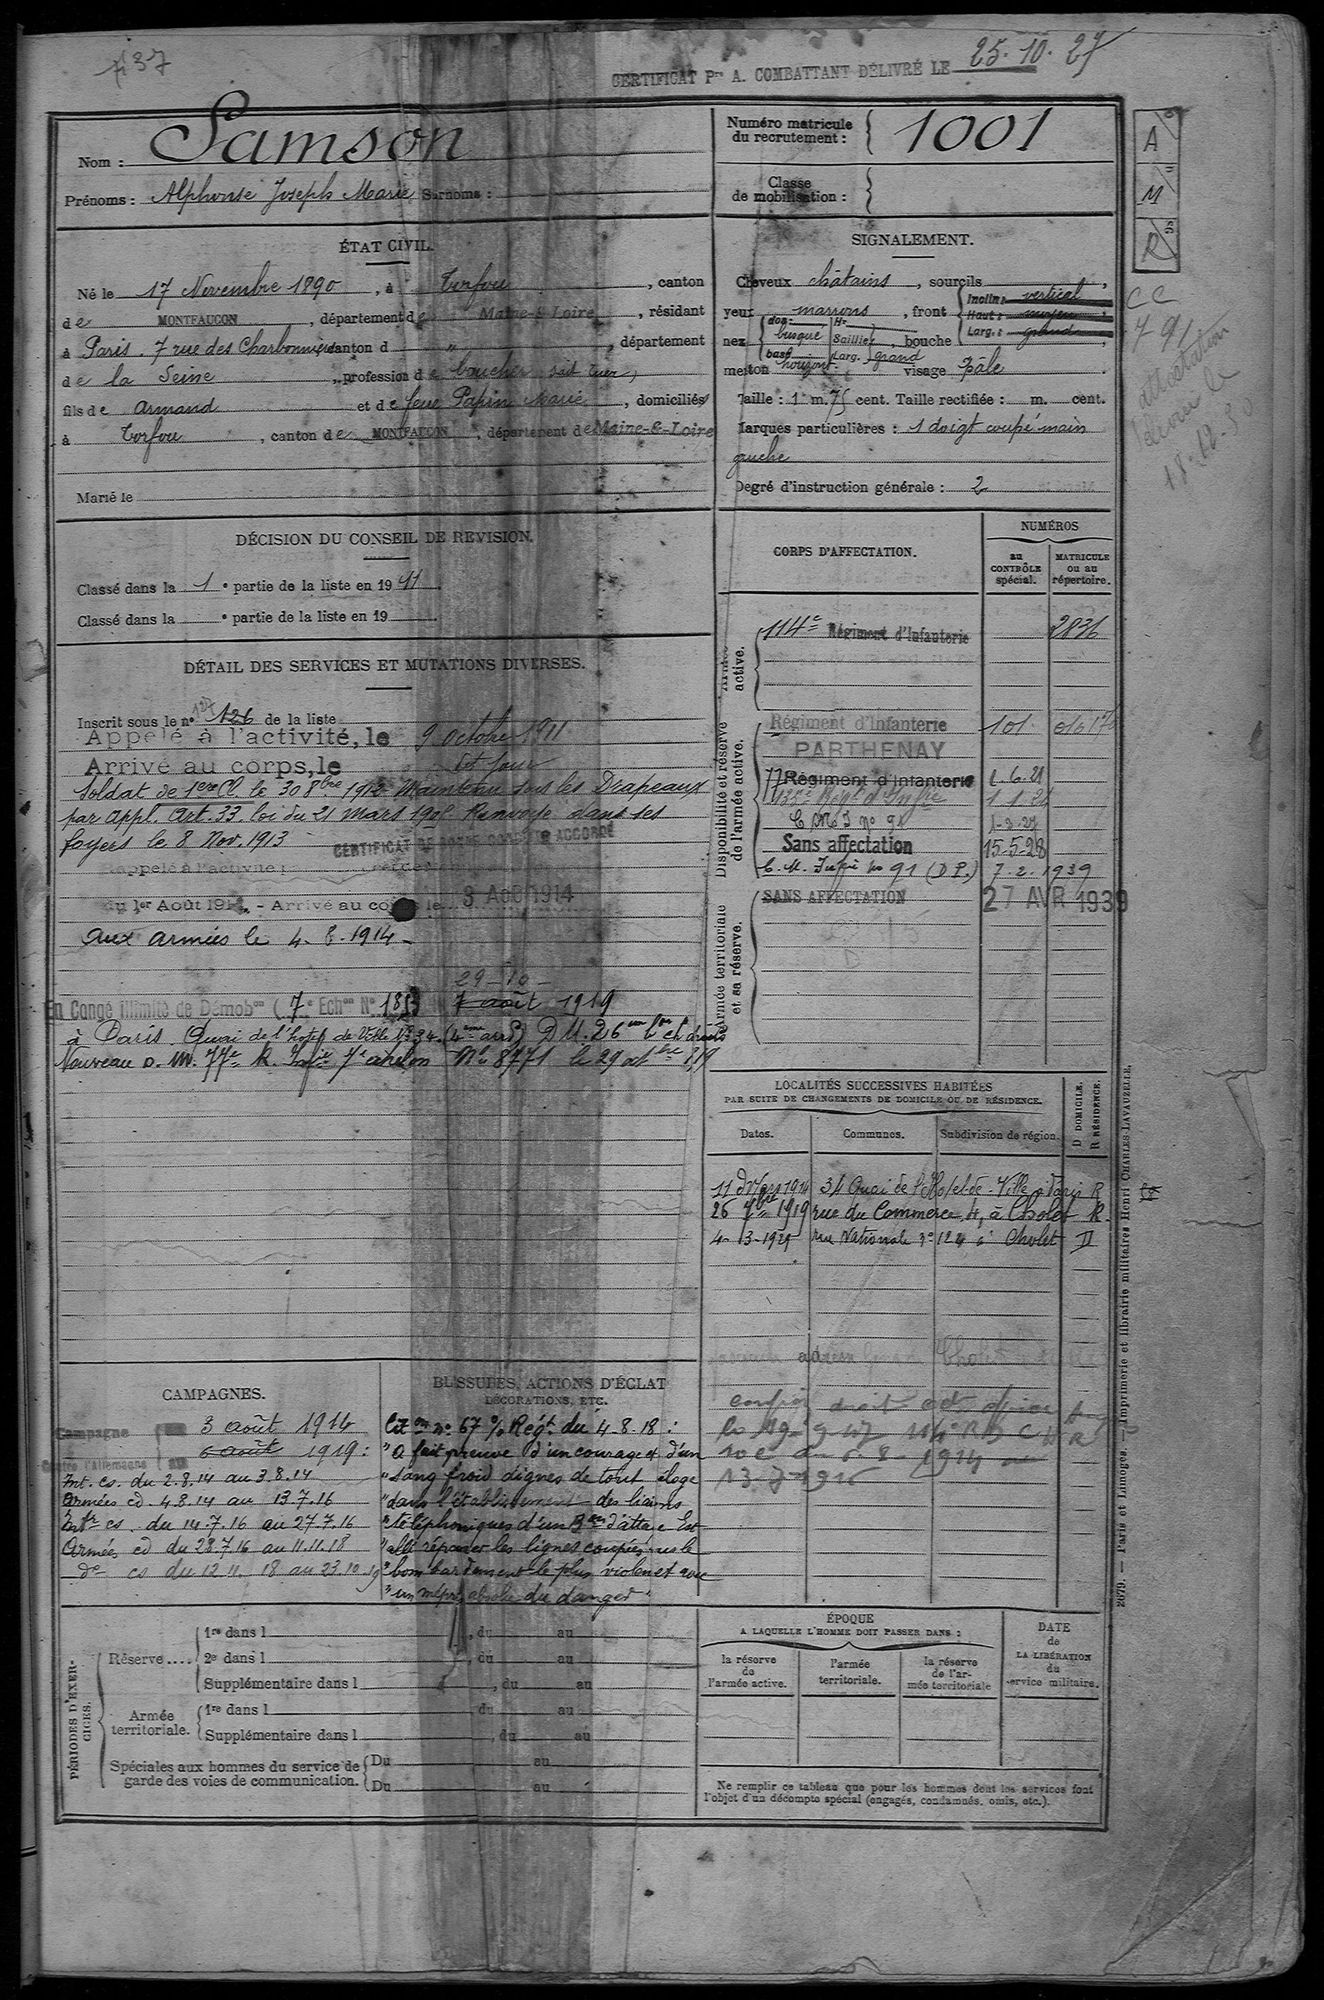 437
CERTIFICAT Pr A. COMBATTANT DÉLIVRÉ LE 25.10.27
Nom : Samson
Prénoms : Alphonse Joseph Marie Surnoms :
Numéro matricule du recrutement : 1001
Classe de mobilisation :
A
M
R
ÉTAT CIVIL.
Né le 17 Novembre 1890, à Torfou, canton
de MONTFAUCON, département de Maine-&-Loire, résidant
à Paris. 7 rue des Charbonniers canton d ", département
de la Seine, profession de boucher sait tuer,
fils de Armand et de feue Papin Marie, domiciliés
à Torfou, canton de MONTFAUCON, département de Maine-&-Loire
Marié le
SIGNALEMENT.
Cheveux châtains, sourcils
yeux marrons, front Inclin : vertical Haut : moyen Larg. : grand
nez dos : busqué base horizont. Hr Saillie Larg. grand, bouche
menton visage pâle
Taille : 1 m. 75 cent. Taille rectifiée : m. cent.
Marques particulières : 1 doigt coupé main
gauche
Degré d'instruction générale : 2
CC
791
attestation
18.12.50
DÉCISION DU CONSEIL DE REVISION.
Classé dans la 1e partie de la liste en 1911.
Classé dans la e partie de la liste en 19
DÉTAIL DES SERVICES ET MUTATIONS DIVERSES.
Inscrit sous le n° 126 127 de la liste
Appelé à l'activité, le 9 octobre 1911
Arrivé au corps, le dit jour
Soldat de 1ere Cl. le 30 8bre 1912 Maintenu sous les Drapeaux
par appl. Art. 33. loi du 21 mars 1905 Renvoyé dans ses
foyers le 8 Nov. 1913
CERTIFICAT DE BONNE CONDUITE ACCORDÉ
Rappelé à l'activité
du 1er Août 1914. - Arrivé au corps le 3 AOÛ 1914
Aux armées le 4-8-1914
29-10-
En Congé illimité de Démobon (7e Echon N° 1853 7 août 1919
à Paris Quai de l'hotel de Ville N° 34. (4eme arrt)
Nouveau D. M. 77e R. Infie 7e échelon N° 8771 le 29
CORPS D'AFFECTATION.
NUMÉROS
au CONTRÔLE spécial.
MATRICULE ou au répertoire.
Armée active.
114e Régiment d'Infanterie 2836
Disponibilité et réserve de l'armée active.
Régiment d'Infanterie 101
PARTHENAY
77 Régiment d'Infanterie 1.6.21
135e Régt d'Infie 1 1.24
C M I n° 91 1-3-27
Sans affectation 15-5-28
C. M. Infie No 91 (D.P.) 7.2.1939
Armée territoriale et sa réserve.
SANS AFFECTATION 27 AVR 1939
LOCALITÉS SUCCESSIVES HABITÉES
PAR SUITE DE CHANGEMENTS DE DOMICILE OU DE RÉSIDENCE.
Dates. Communes. Subdivision de région. D DOMICILE. R RÉSIDENCE.
11 Mars 1914 34 Quai de l'Hotel-de-Ville à Paris R
26 7bre 1919 rue du Commerce, 4, à Cholet R.
4-3-1925 rue Nationale N° 124 à Cholet D
CAMPAGNES.
Campagne contre l'Allemagne
3 août 1914
6 août 1919 :
Int. cs. du 2.8.14 au 3.8.14
Armées cd. 4.8.14 au 13.7.16
Intr cs. du 14.7.16 au 27.7.16
Armées cd du 28.7.16 au 11.11.18
do cs du 12.11.18 au 23.10.19
BLESSURES, ACTIONS D'ÉCLAT
DÉCORATIONS, ETC.
Citon n° 67 % Régt du 4.8.18 :
"A fait preuve d'un courage et d'un
"sang froid dignes de tout éloge
"dans l'établissement des liaisons
"téléphoniques d'un Bon d'attaque Est
"allé réparer les lignes coupées sous le
"bombardement le plus violent et avec
"un mépris absolu du danger"
13-7-1916
PÉRIODES D'EXERCICES.
Réserve.... 1re dans l , du au
2e dans l , du au
Supplémentaire dans l , du au
Armée territoriale. 1re dans l du au
Supplémentaire dans l , du au
Spéciales aux hommes du service de garde des voies de communication. Du au
Du au
ÉPOQUE
A LAQUELLE L'HOMME DOIT PASSER DANS :
la réserve de l'armée active.
l'armée territoriale.
la réserve de l'armée territoriale
DATE de LA LIBÉRATION du service militaire.
Ne remplir ce tableau que pour les hommes dont les services font
l'objet d'un décompte spécial (engagés, condamnés, omis, etc.).
2679. — Paris et Limoges. — Imprimerie et librairie militaires Henri CHARLES-LAVAUZELLE.